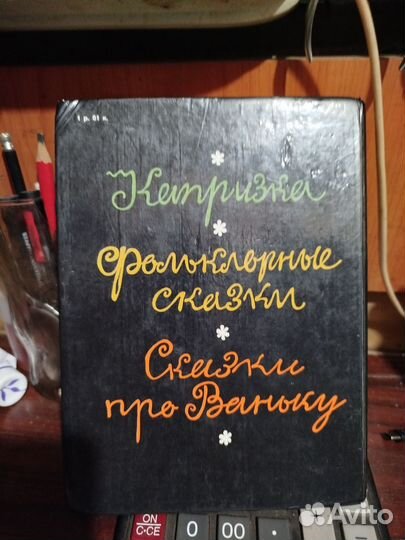 1 р. 01 к.
Капризка
Фольклорные
сказки
Сказки
про Ваньку
ON
C·CE
0
00
·
Avito